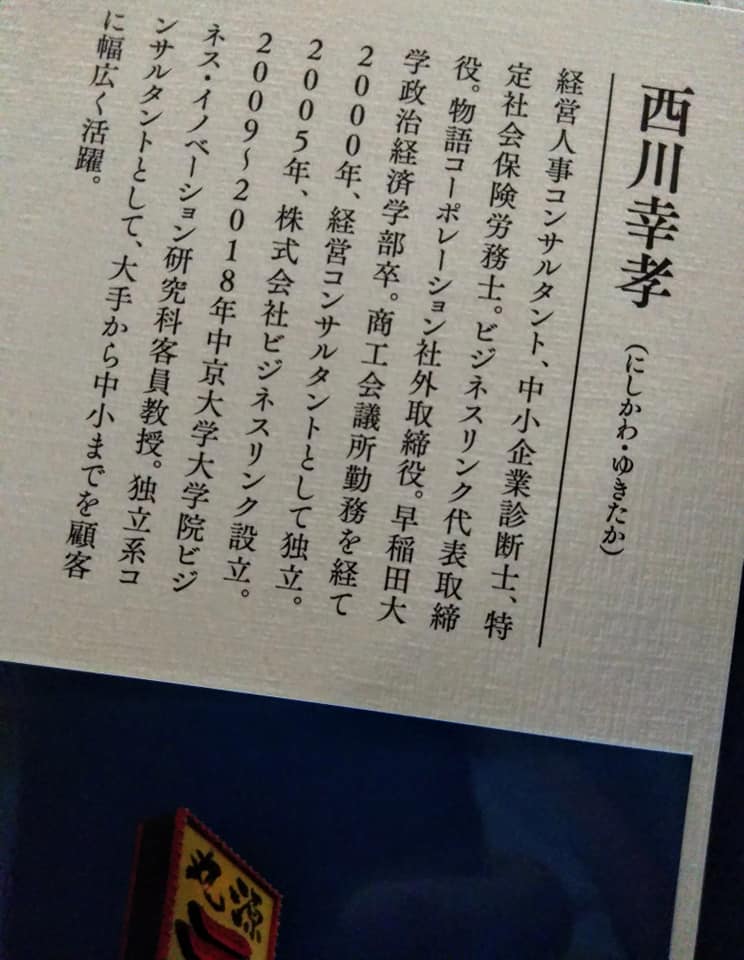 西川幸孝（にしかわ・ゆきたか）
経営人事コンサルタント、中小企業診断士、特
定社会保険労務士。ビジネスリンク代表取締
役。物語コーポレーション社外取締役。早稲田大
学政治経済学部卒。商工会議所勤務を経て
2000年、経営コンサルタントとして独立。
2005年、株式会社ビジネスリンク設立。
2009〜2018年中京大学大学院ビジ
ネス・イノベーション研究科客員教授。独立系コ
ンサルタントとして、大手から中小までを顧客
に幅広く活躍。
丸源